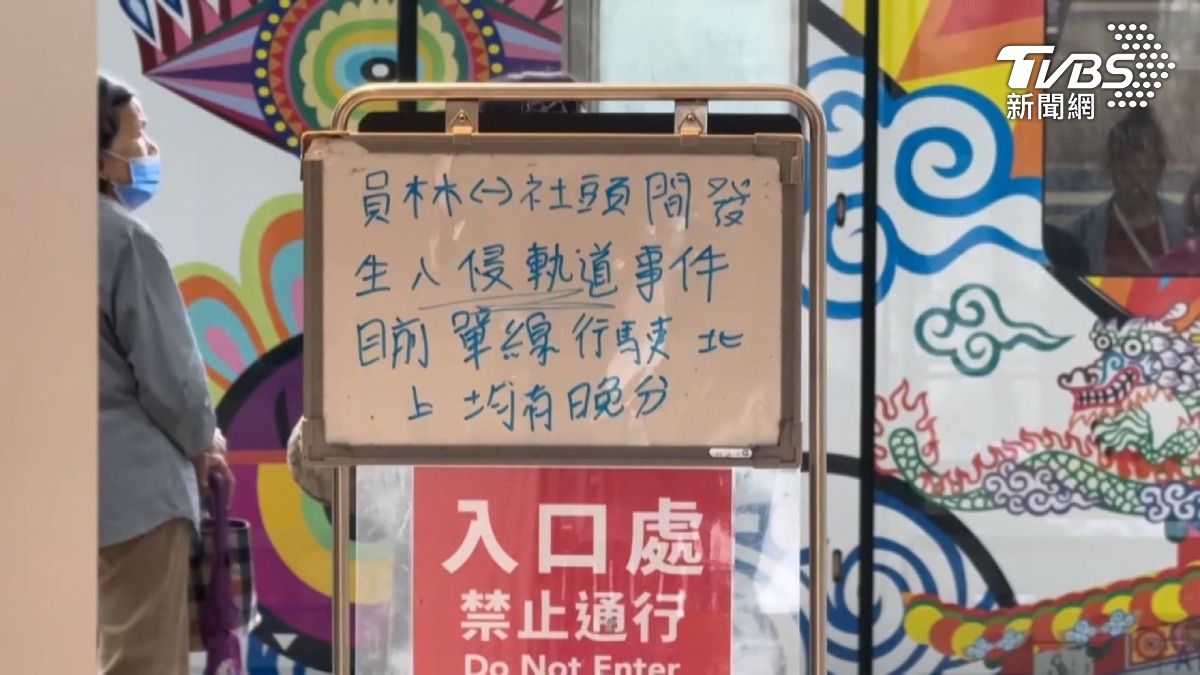 TVBS
新聞網
員林<->社頭間發
生入侵軌道事件
目前單線行駛北
上均有晚分
入口處
禁止通行
Do Not Enter